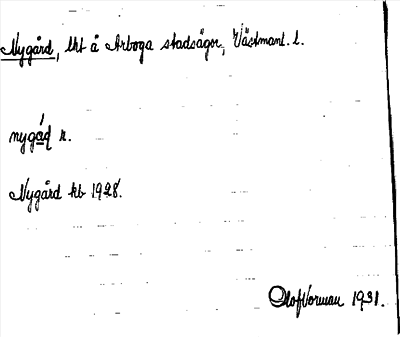 Nygård, lht å Arboga stadsägor, Västmanl. l.
nygá̱d n.
Nygård kb 1928.
Olof Vorman 1931.